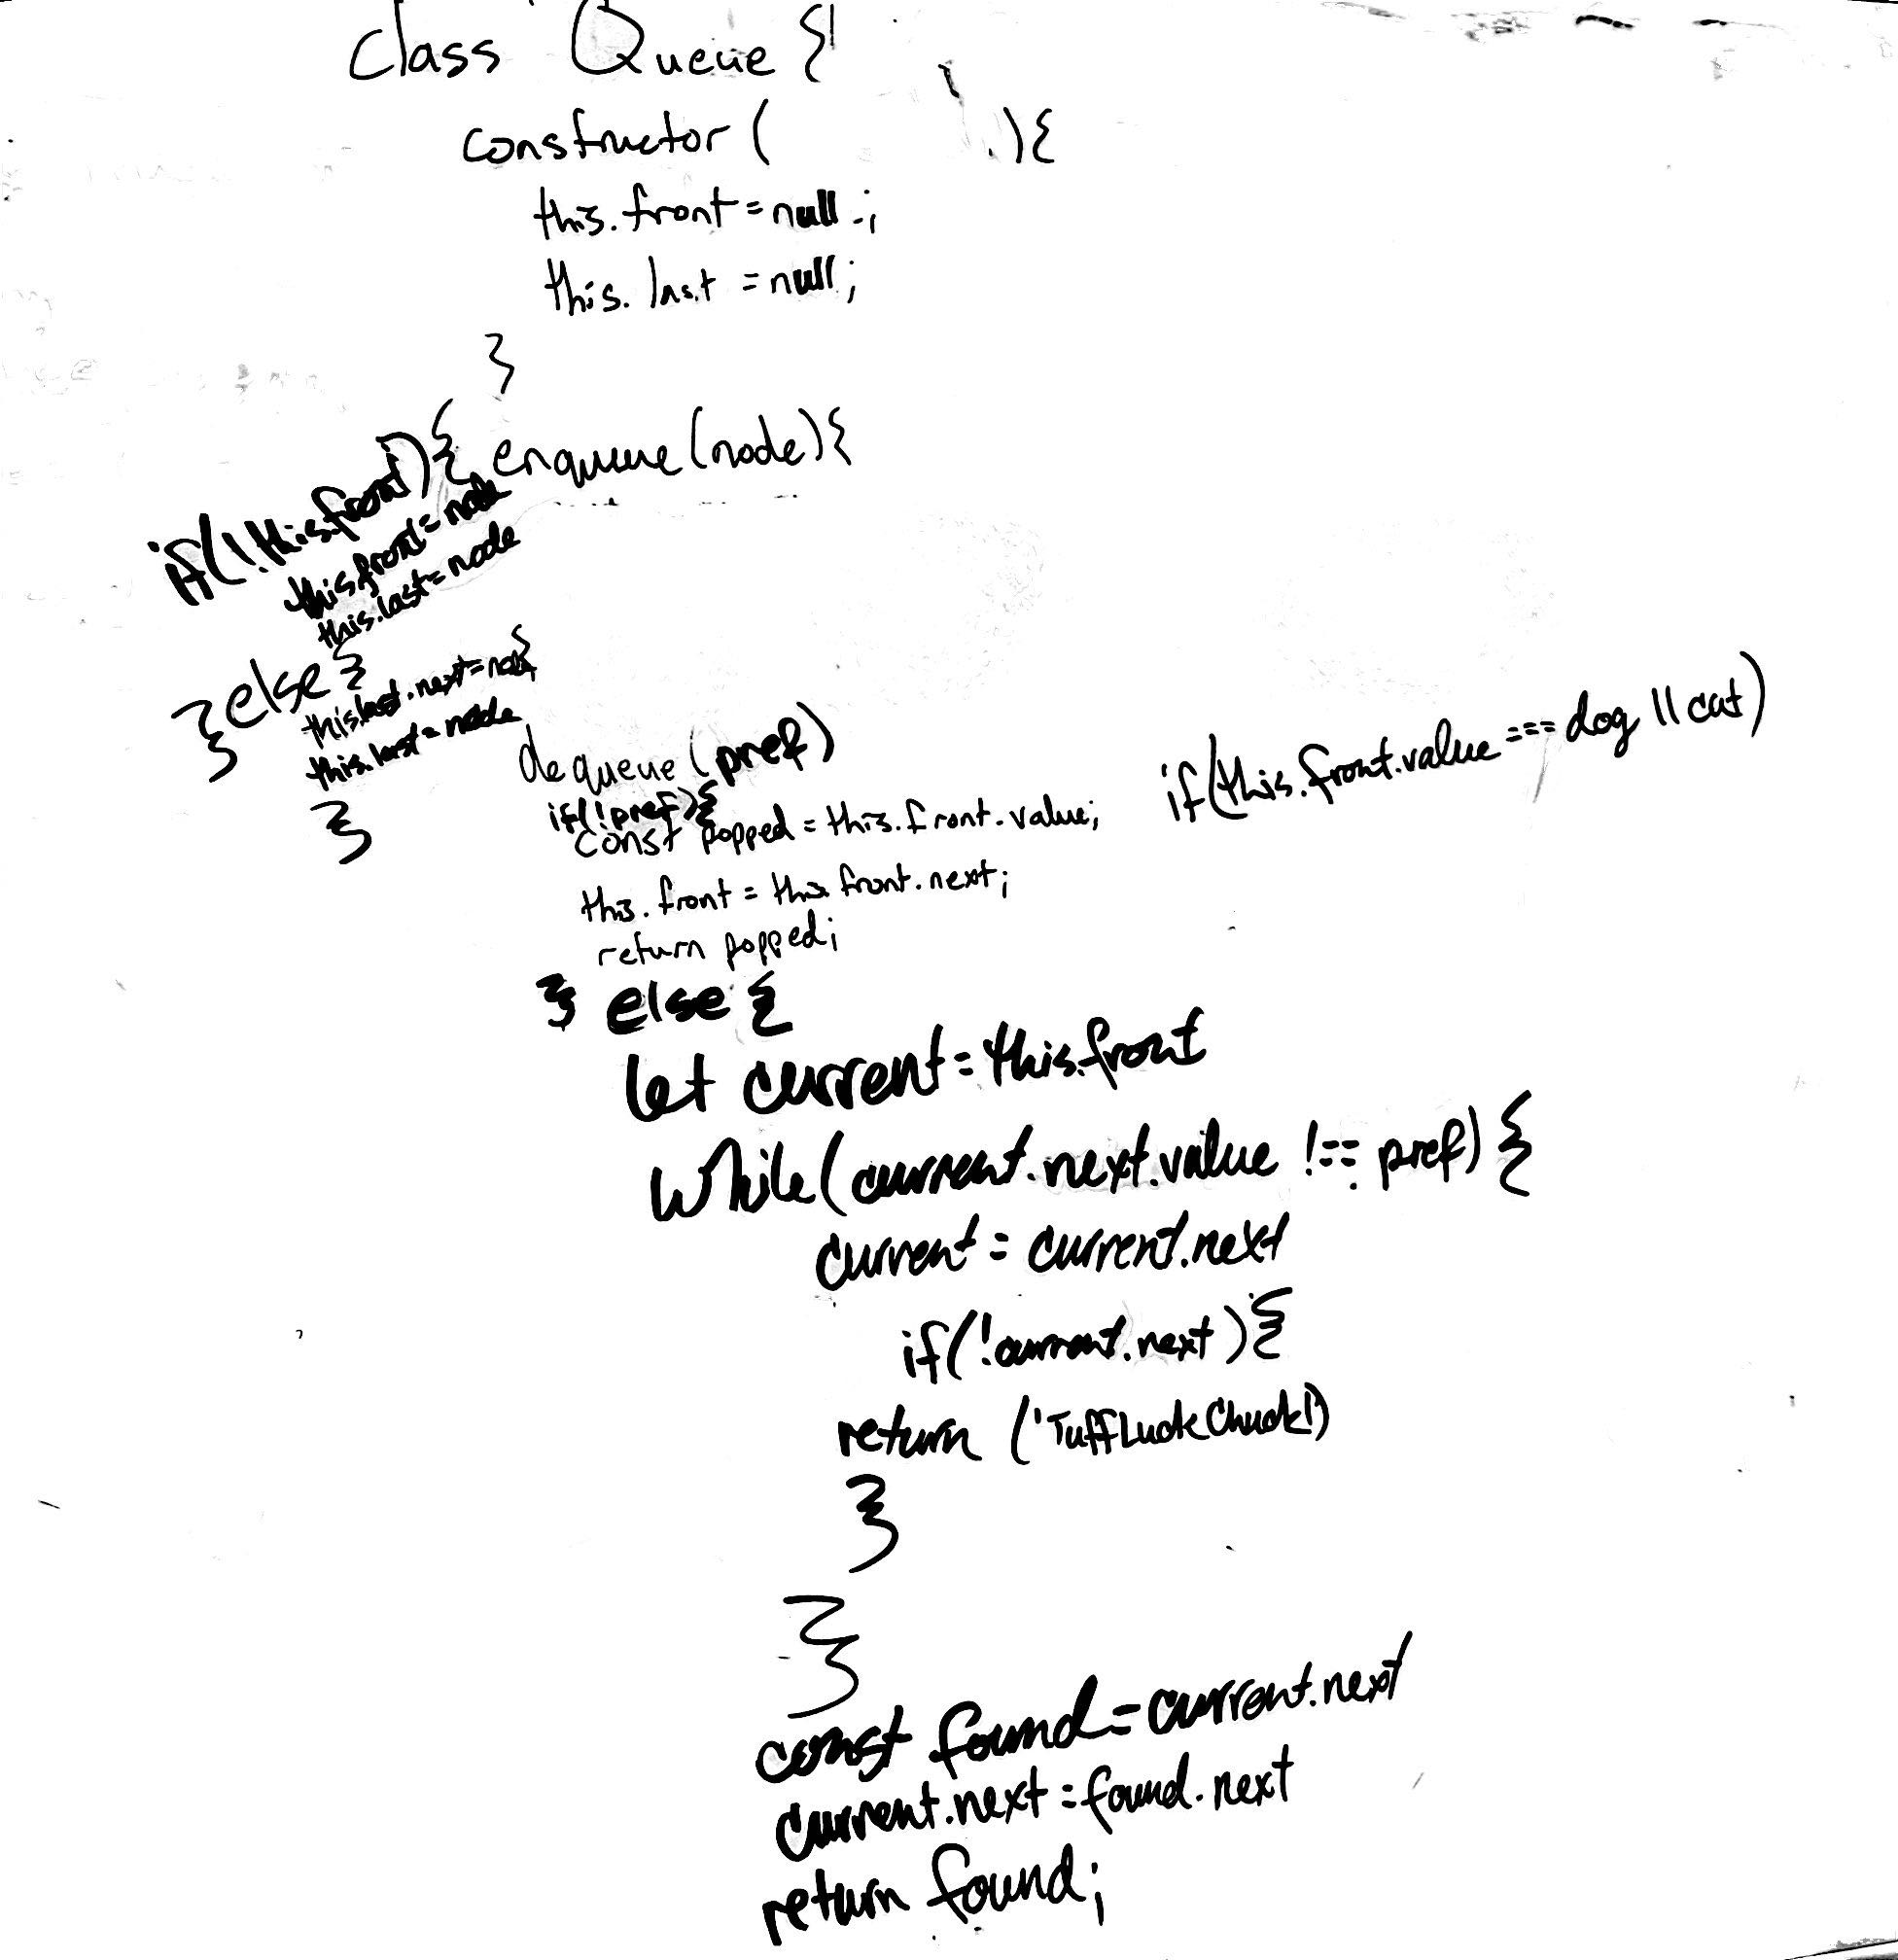 class Queue {
constructor ( ) {
this.front = null ;
this.last = null;
}
enqueue (node) {
if(!this.front) {
this.front = node
this.last = node
} else {
this.last.next = node
this.last = node
}
}
dequeue (pref)
if(!pref) {
const popped = this.front.value;
this.front = this.front.next;
return popped;
if(this.front.value === dog || cat)
} else {
let current = this.front
while (current.next.value !== pref) {
current = current.next
if(!current.next) {
return ('TuffLuckChuck!')
}
}
const found = current.next
current.next = found.next
return found;